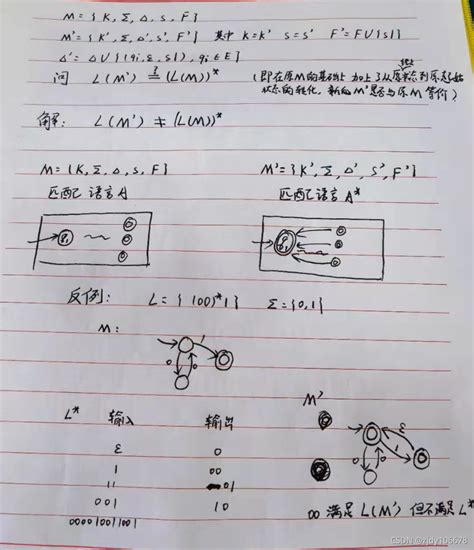 M = {K, Σ, Δ, S, F}
M' = {K', Σ, Δ', S', F'} 其中 K=K' S=S' F'=FU{S}
Δ' = ΔU{(qi, ε, s)}, qi∈E}
终止
问 L(M') ≟ (L(M))* (即在原M的基础上加上了从原状态到原起始
状态的转化, 新的M'是否与原M等价)
解: L(M') ≠ (L(M))*
M = {K, Σ, Δ, S, F} M' = {K', Σ, Δ', S', F'}
匹配语言A 匹配语言A*
反例: L = {(00)*1} Σ={0,1}
M:
1
0 0
L* 输入 输出 M'
ε 0 ε
1 00 1
11 01 0 0
001 10
00001001001 00 满足L(M') 但不满足L*
CSDN @zjdy106678